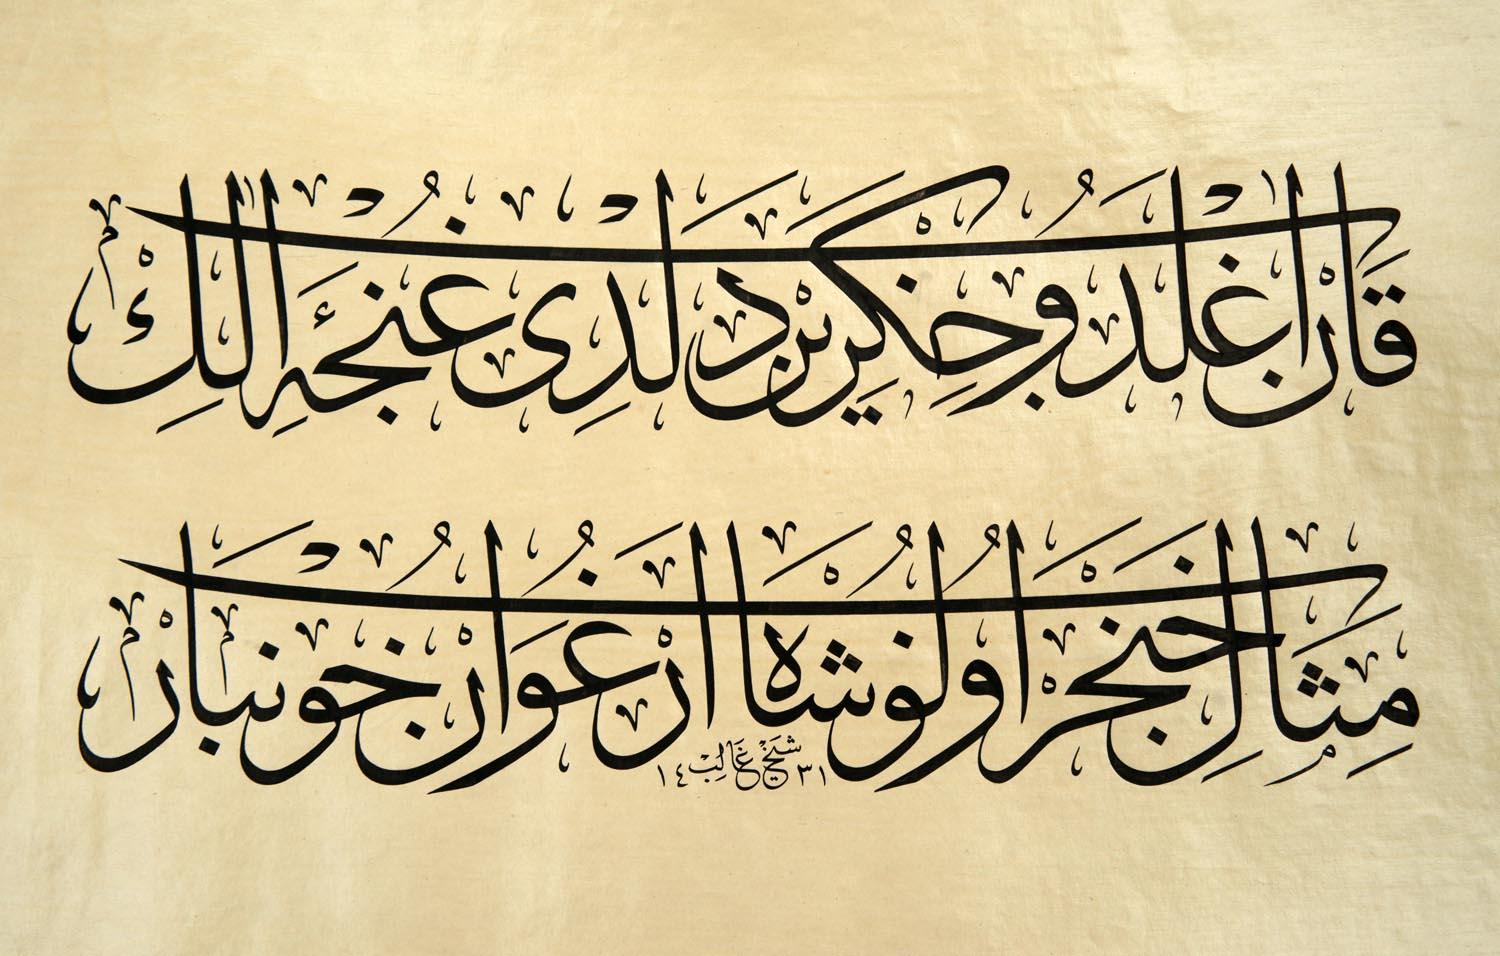 قان اغلدوب جكرين دلدى غنجۀ الك
مثال خنجر اولوب شاه ارغوان خونبار
شيخ غالب ١٤٣١